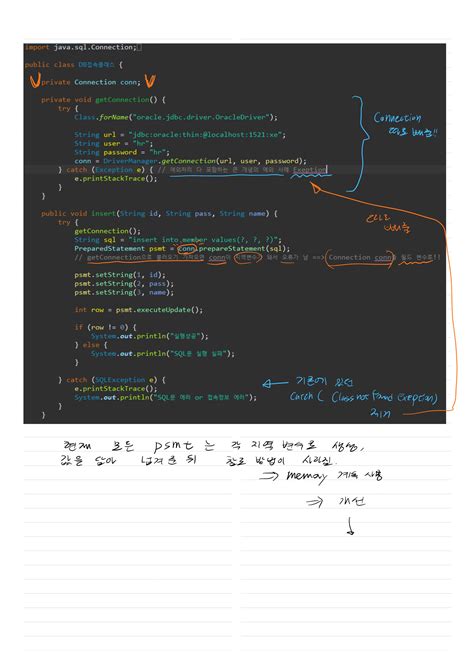 import java.sql.Connection;
public class DB접속클래스 {
private Connection conn;
private void getConnection() {
try {
Class.forName("oracle.jdbc.driver.OracleDriver");
String url = "jdbc:oracle:thin:@localhost:1521:xe";
String user = "hr";
String password = "hr";
conn = DriverManager.getConnection(url, user, password);
} catch (Exception e) { // 예외처리 다 포함하는 큰 개념의 예외 사례 Exeption
e.printStackTrace();
}
}
Connection
따로 빼줌!!
public void insert(String id, String pass, String name) {
try {
getConnection();
String sql = "insert into member values(?, ?, ?)";
PreparedStatement psmt = conn.prepareStatement(sql);
// getConnection으로 불러오기 가져오면 conn이 지역변수가 돼서 오류가 남 ==> Connection conn을 필드 변수로!!
따로
빼줌
psmt.setString(1, id);
psmt.setString(2, pass);
psmt.setString(3, name);
int row = psmt.executeUpdate();
if (row != 0) {
System.out.println("실행성공");
} else {
System.out.println("SQL문 실행 실패");
}
} catch (SQLException e) {
e.printStackTrace();
System.out.println("SQL문 에러 or 접속정보 에러");
}
}
기존에 있던
catch ( Class not Found Exeption)
제거
현재 모든 psmt 는 각 지역변수로 생성,
값을 담아 넘겨준 뒤 참조 방법이 사라짐.
⇒ memory 계속 사용
⇒ 개선
↓